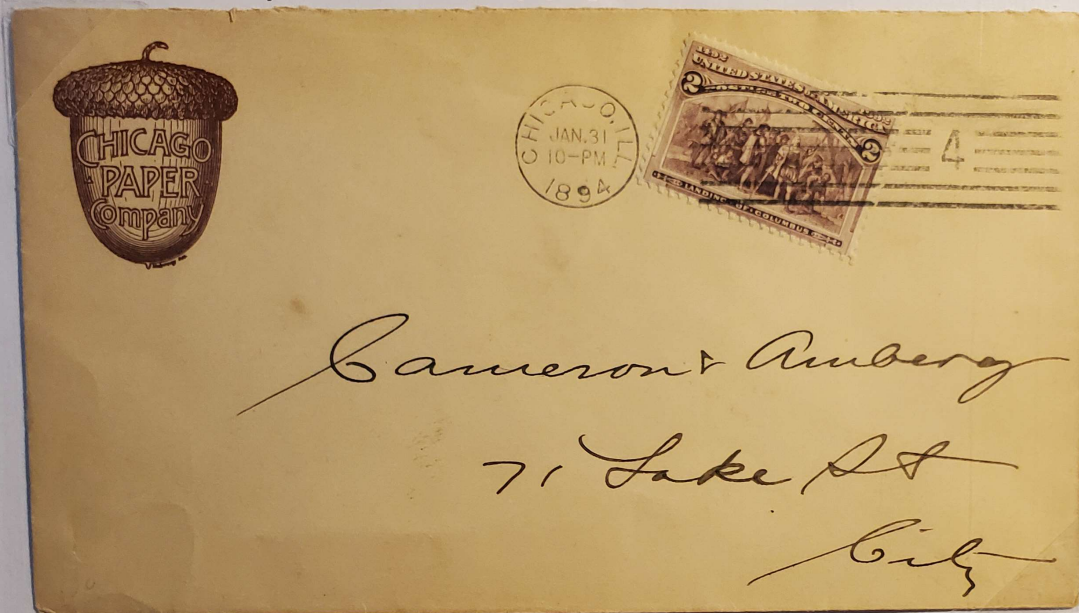 CHICAGO
PAPER
Company
CHICAGO, ILL.
JAN. 31
10-PM
1894
1492
1892
UNITED STATES OF AMERICA
2
2
LANDING OF COLUMBUS
4
Cameron & Amberg
71 Lake St
City